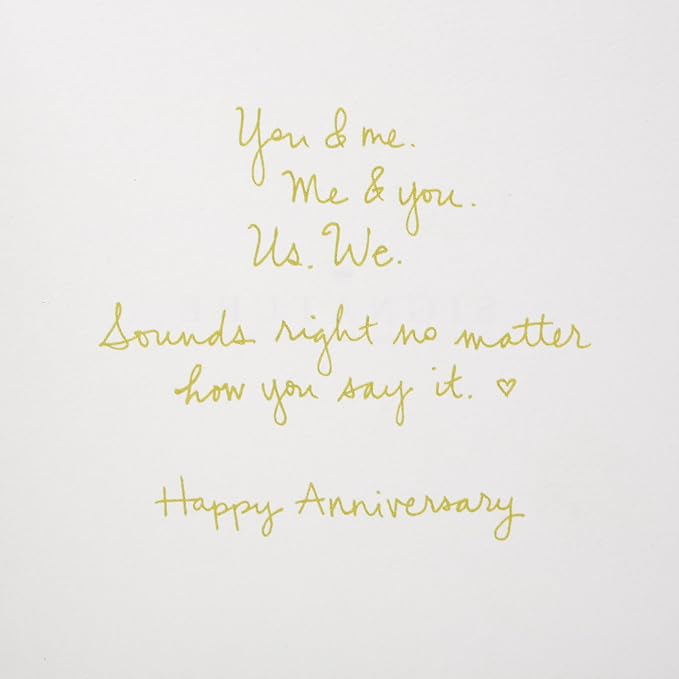 You & me.
Me & you.
Us. We.
Sounds right no matter
how you say it. ♡
Happy Anniversary